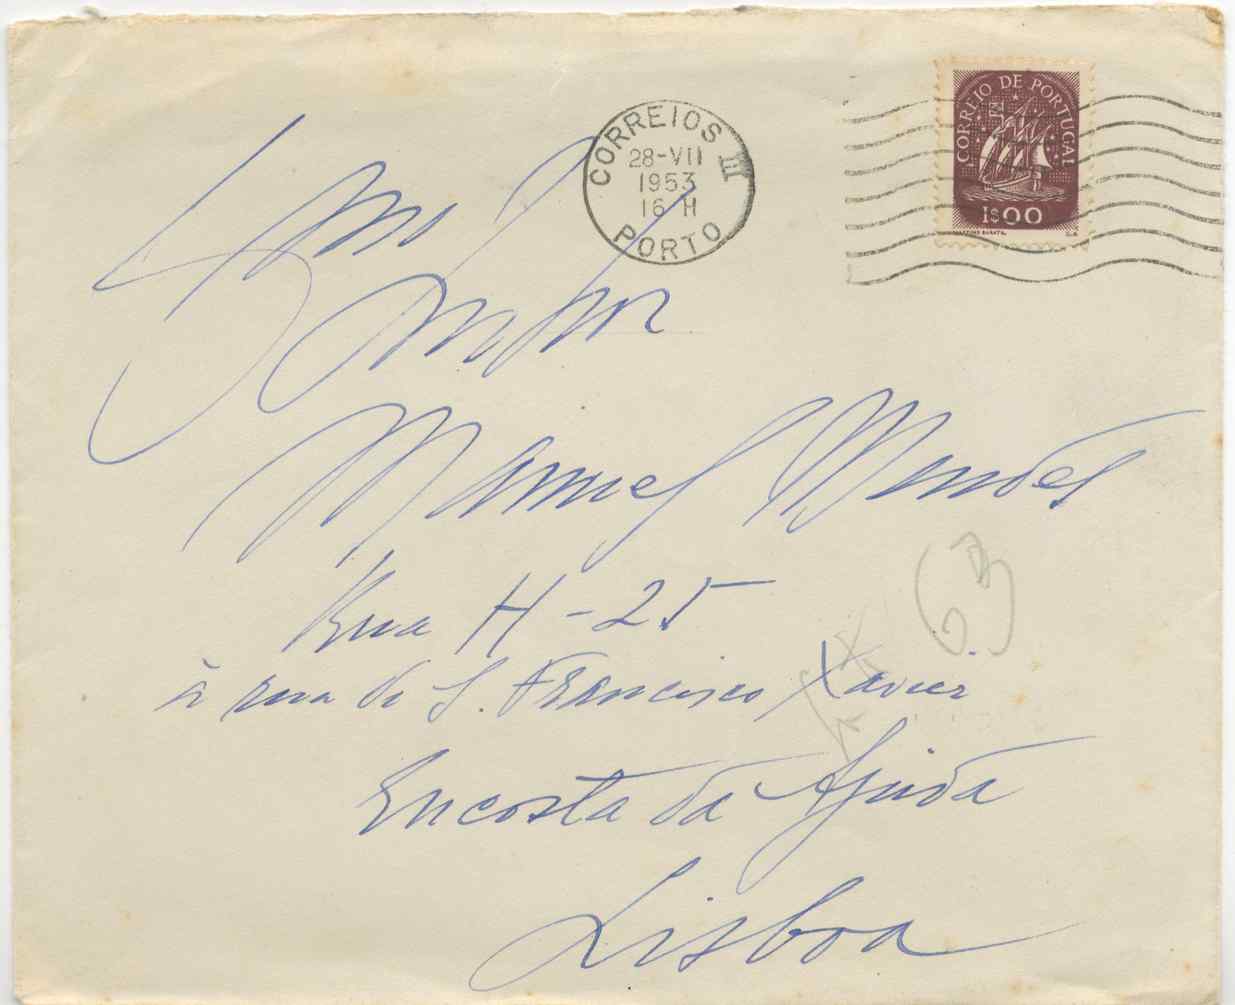 CORREIOS III
28-VII
1953
16 H
PORTO
CORREIO DE PORTUGAL
1$00
Exmo Sr.
Senhor
Manuel Mendes
Rua H - 25
à rua de S. Francisco Xavier
Encosta da Ajuda
Lisboa
63